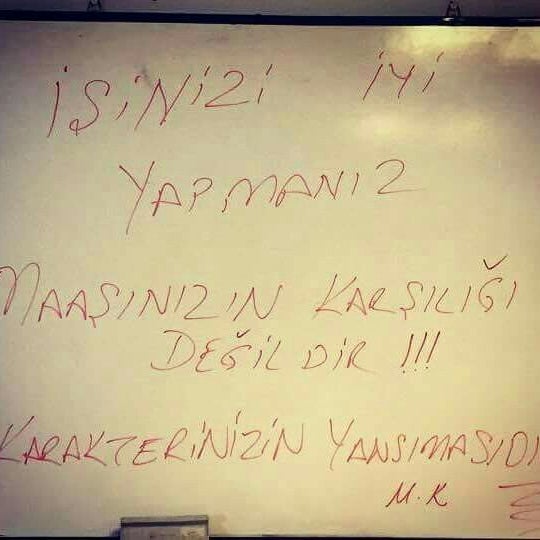 İŞİNİZİ İYİ
YAPMANIZ
MAAŞINIZIN KARŞILIĞI
DEĞİLDİR !!!
KARAKTERİNİZİN YANSIMASIDI
M.K